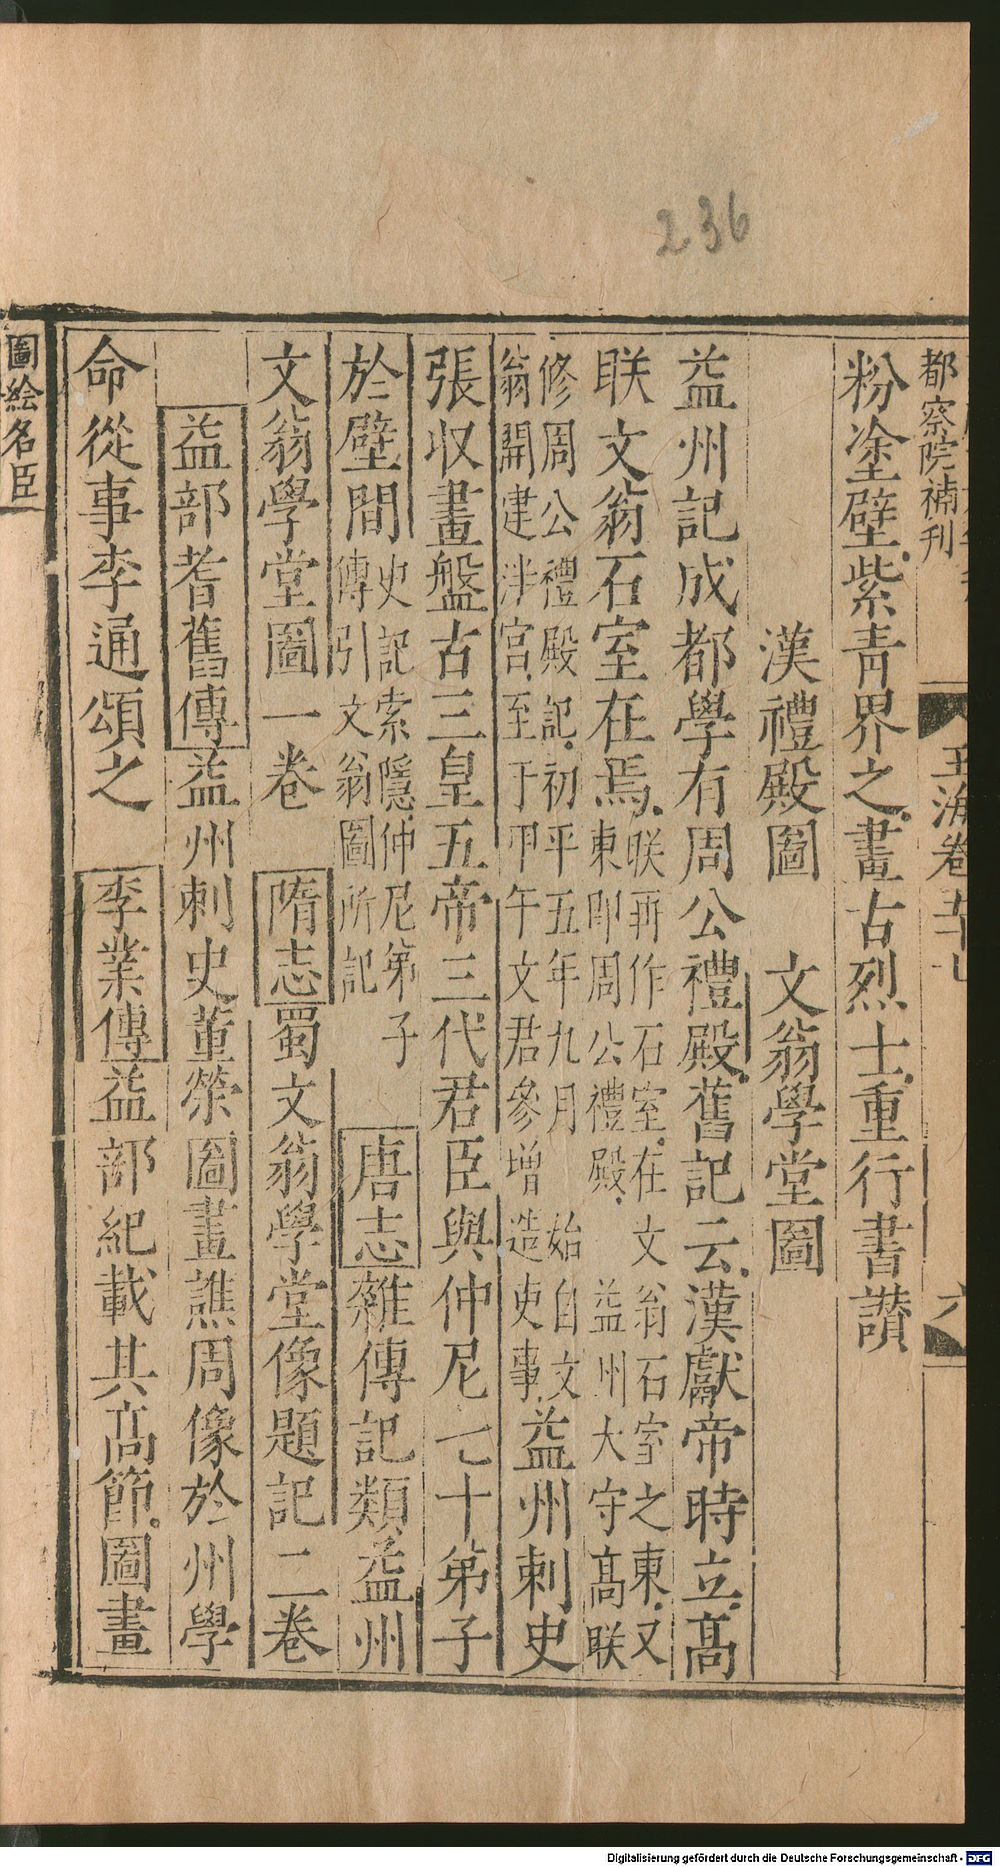 236
都察院補刋
玉海卷五十七
六
粉塗壁紫青界之畫古烈士重行書讃
漢禮殿圖 文翁學堂圖
益州記成都學有周公禮殿舊記云漢獻帝時立髙
聯文翁石室在焉聯再作石室在文翁石室之東又
東即周公禮殿 益州大守髙聯
修周公禮殿記初平五年九月 始自文
翁開建泮宫至于甲午文君參增造吏事益州刺史
張収畫盤古三皇五帝三代君臣與仲尼七十弟子
於壁間史記索隱仲尼弟子
傳引文翁圖所記 唐志雜傳記類益州
文翁學堂圖一卷 隋志蜀文翁學堂像題記二卷
益部耆舊傳益州刺史董榮圖畫譙周像於州學
命從事李通頌之 李業傳益部紀載其髙節圖畫
圖絵名臣
Digitalisierung gefördert durch die Deutsche Forschungsgemeinschaft - DFG